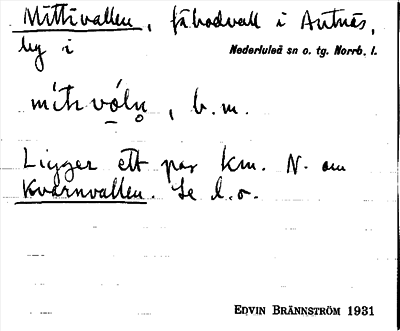 Mittivallen, fäbodvall i Antnäs,
by i Nederluleå sn o. tg. Norrb. l.
mitɩvóln̥, b. m.
Ligger ett par km. N. om
Kvarnvallen. Se d. o.
EDVIN BRÄNNSTRÖM 1931